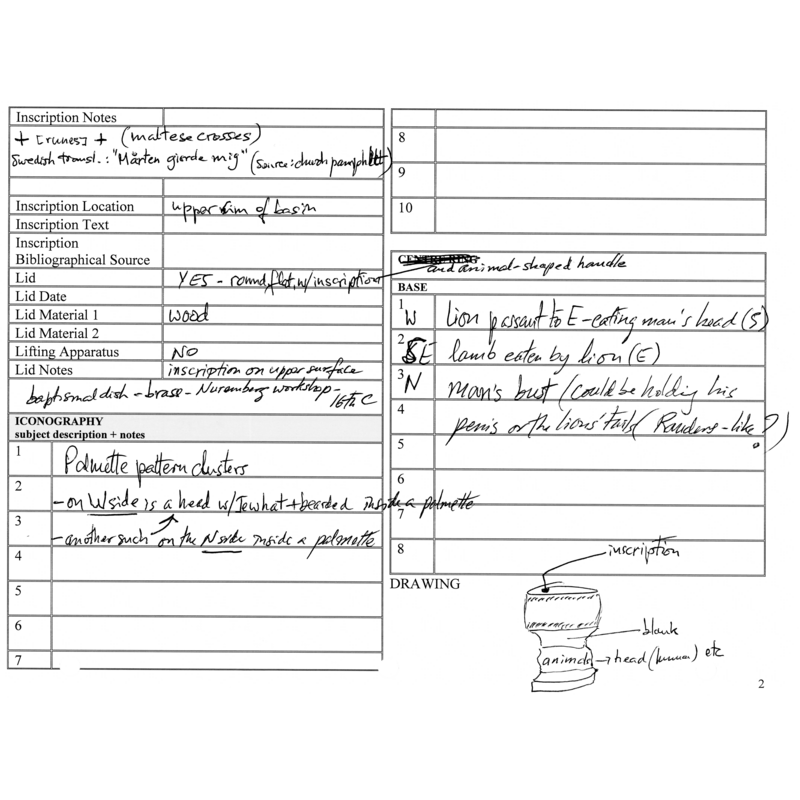 Inscription Notes
+ [runes] + (maltese crosses)
Swedish transl.: "Mårten gjerde mig" (source: church pamphlett)
Inscription Location upper rim of basin
Inscription Text
Inscription
Bibliographical Source
Lid YES - round, flat, w/ inscription and animal-shaped handle
Lid Date
Lid Material 1 wood
Lid Material 2
Lifting Apparatus NO
Lid Notes inscription on upper surface
baptismal dish - brass - Nuremberg workshop - 16th C
ICONOGRAPHY
subject description + notes
1 Palmette pattern clusters
2 - on W side is a head w/ Jewhat + bearded inside a palmette
3 - another such on the N side inside a palmette
4
5
6
7
8
9
10
CENTRE RING
BASE
1 W lion passant to E - eating man's head (S)
2 SE lamb eaten by lion (E)
3 N man's bust (could be holding his
4 penis or the lions' tails (Randers-like?)
5
6
7
8
DRAWING
inscription
blank
animals → head (human) etc
2